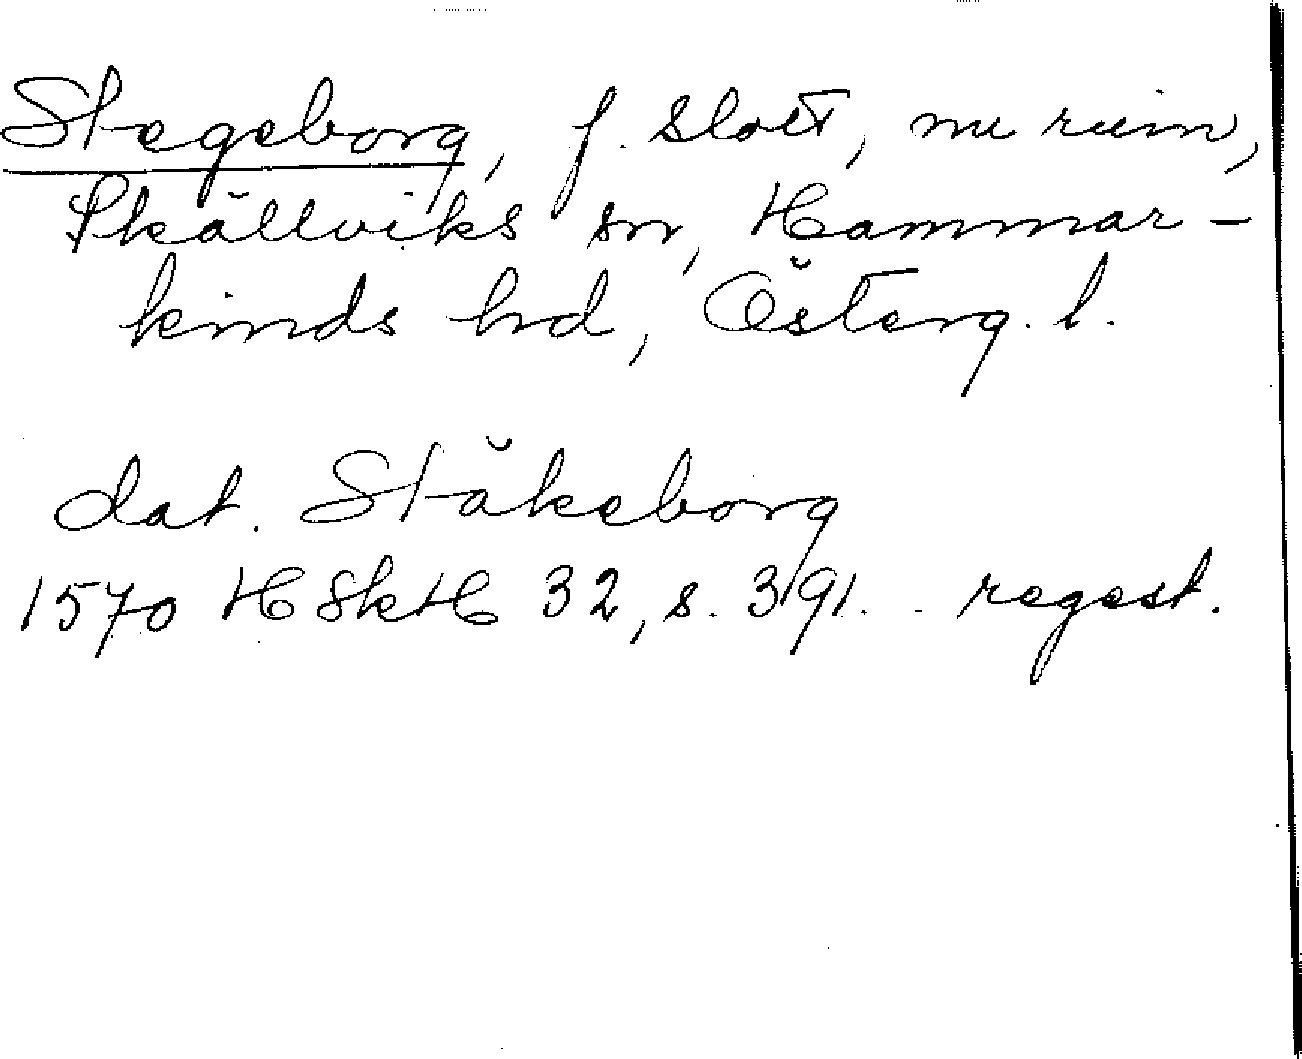 Stegeborg, f. slott, nu ruin,
Skällviks sn, Hammar-
kinds hd, Österg. l.
dat. Stäkeborg
1570 HSkH 32, s. 391. regest.